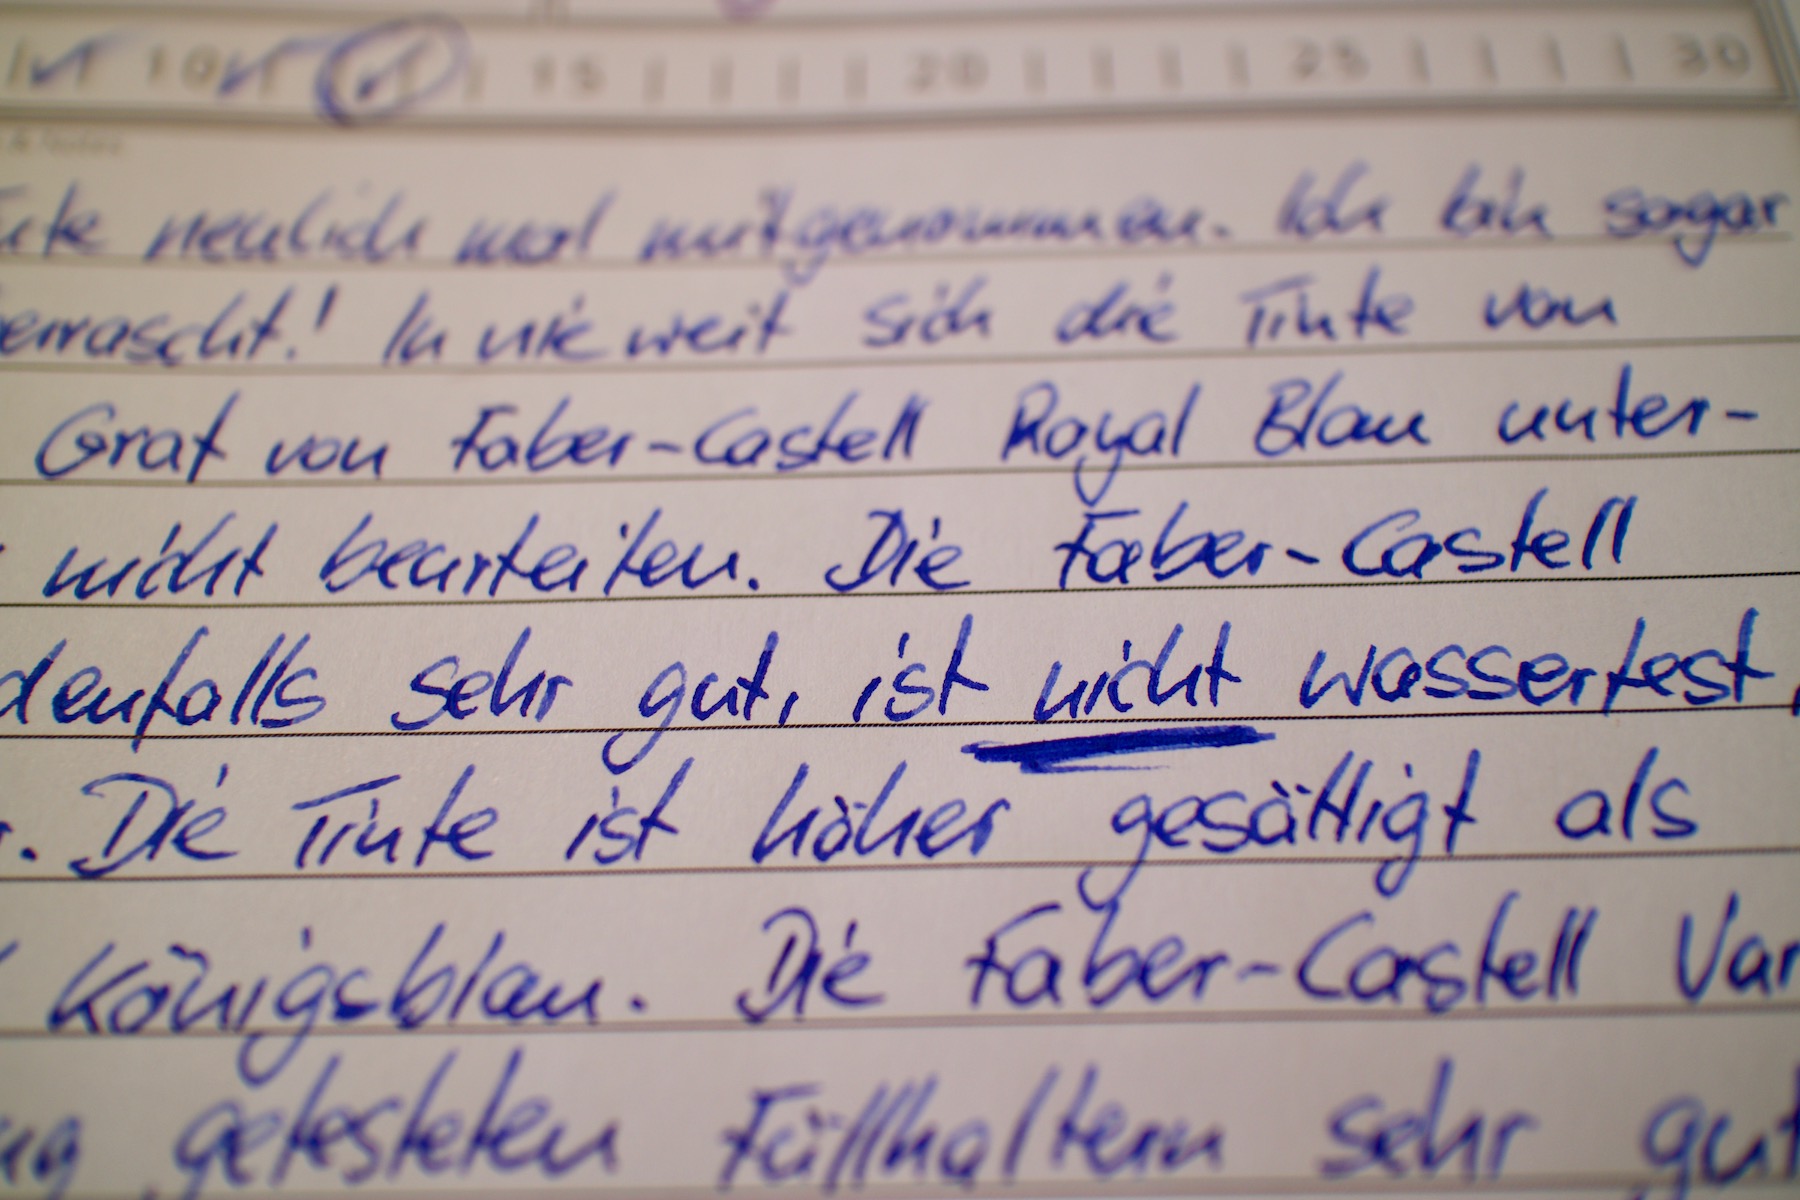 10 15 20 25 30
& Notes
neulich mal mitgenommen. Ich bin sogar
errascht! In wie weit sich die Tinte von
Graf von Faber-Castell Royal Blau unter-
nicht beurteilen. Die Faber-Castell
denfalls sehr gut, ist nicht wasserfest,
. Die Tinte ist höher gesättigt als
Königsblau. Die Faber-Castell Var
ug getesteten Füllhaltern sehr gut